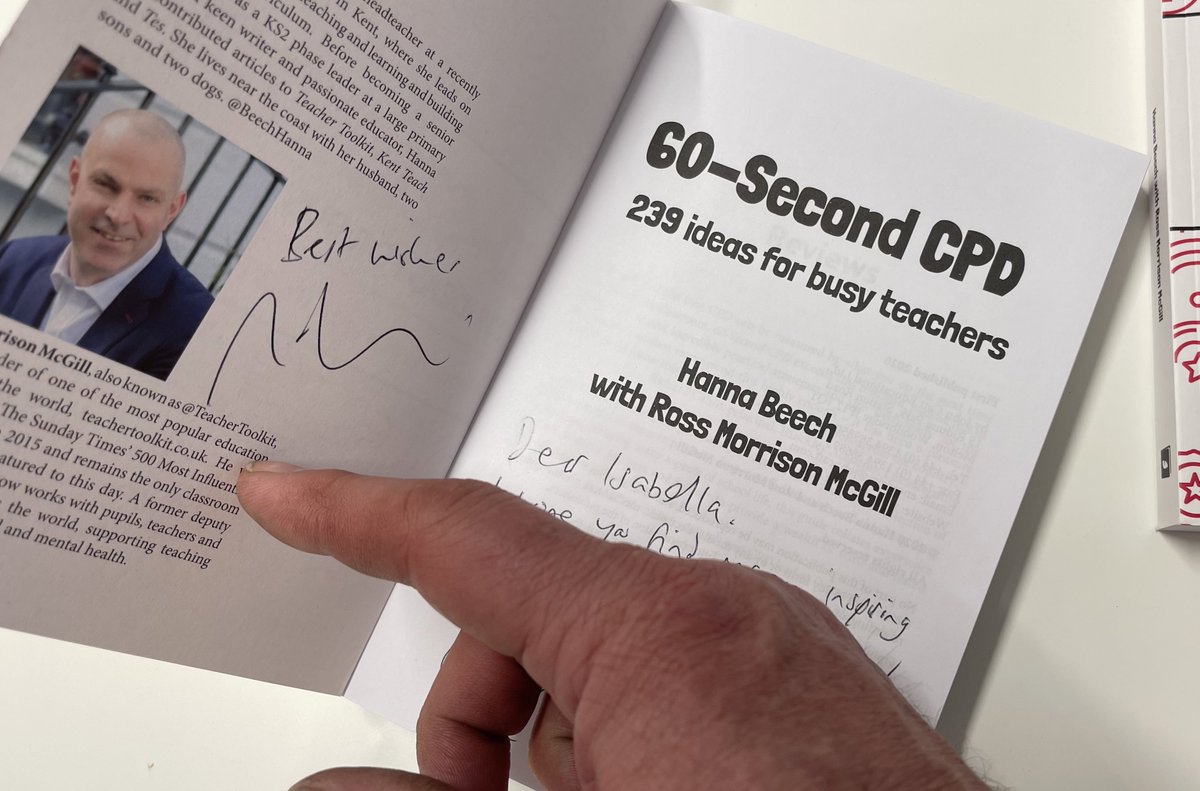 eadteacher at a recently
in Kent, where she leads on
eaching and learning and building
iculum. Before becoming a senior
as a KS2 phase leader at a large primary
keen writer and passionate educator, Hanna
contributed articles to Teacher Toolkit, Kent Teach
and Tes. She lives near the coast with her husband, two
sons and two dogs. @BeechHanna
Best wishes
rrison McGill, also known as @TeacherToolkit,
der of one of the most popular education
the world, teachertoolkit.co.uk. He
The Sunday Times' 500 Most Influent
2015 and remains the only classroom
atured to this day. A former deputy
ow works with pupils, teachers and
the world, supporting teaching
l and mental health.
60-Second CPD
239 ideas for busy teachers
Hanna Beech
with Ross Morrison McGill
Dear Isabella.
you find inspiring
Hanna Beech with Ross Morrison McGill